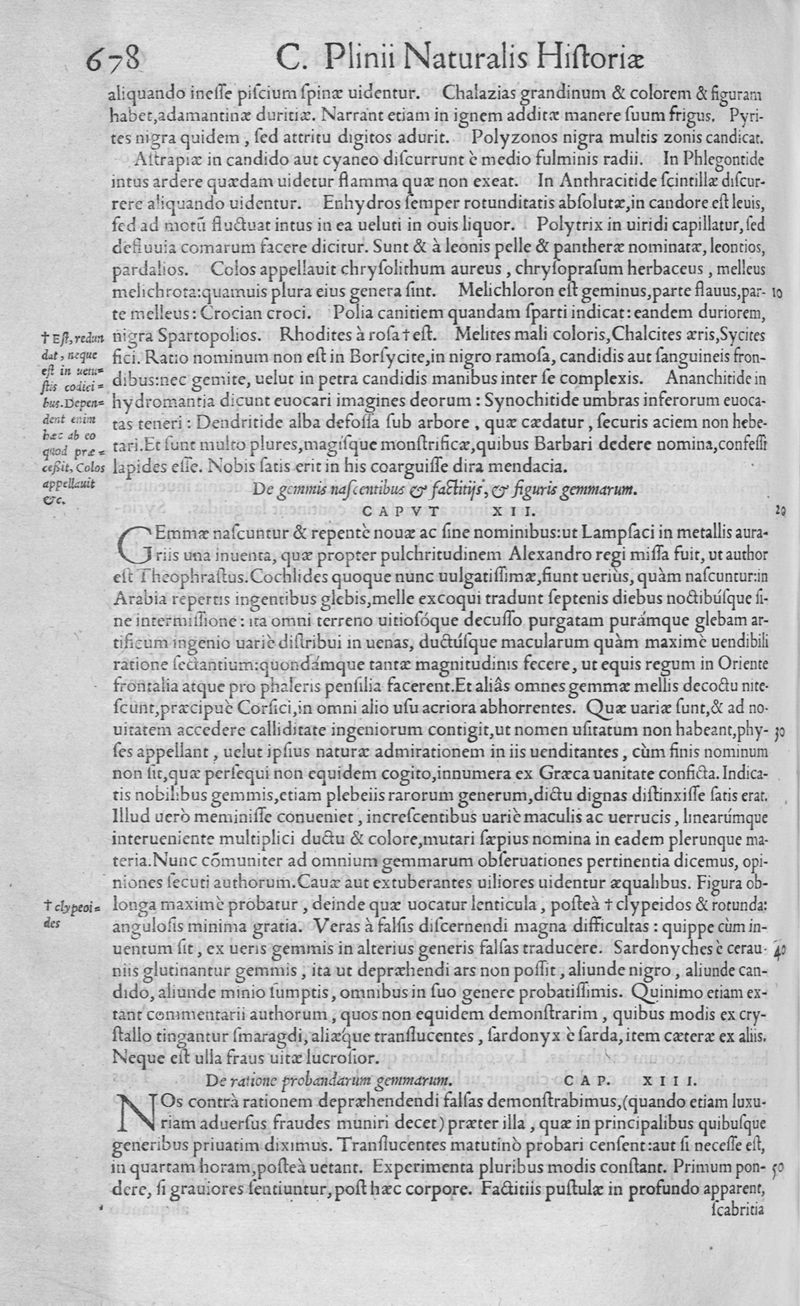 678 C. Plinii Naturalis Hiſtoriæ
aliquando ineſſe piſcium ſpinæ uidentur. Chalazias grandinum & colorem & figuram
habet,adamantinæ duritiæ. Narrant etiam in ignem additæ manere ſuum frigus. Pyri-
tes nigra quidem , ſed attritu digitos adurit. Polyzonos nigra multis zonis candicat.
Aſtrapiæ in candido aut cyaneo diſcurrunt è medio fulminis radii. In Phlegontide
intus ardere quædam uidetur flamma quæ non exeat. In Anthracitide ſcintillæ diſcur-
rere aliquando uidentur. Enhydros ſemper rotunditatis abſolutæ,in candore eſt leuis,
ſed ad motū fluctuat intus in ea ueluti in ouis liquor. Polytrix in uiridi capillatur, ſed
defluuia comarum facere dicitur. Sunt & à leonis pelle & pantheræ nominatæ, leontios,
pardalios. Colos appellauit chryſolithum aureus , chryſopraſum herbaceus , melleus
melichrota:quamuis plura eius genera ſint. Melichloron eſt geminus,parte flauus,par- 10
te melleus: Crocian croci. Polia canitiem quandam ſparti indicat: eandem duriorem,
nigra Spartopolios. Rhodites à roſa † eſt. Melites mali coloris,Chalcites æris,Sycites
fici. Ratio nominum non eſt in Borſycite,in nigro ramoſa, candidis aut ſanguineis fron-
dibus:nec gemite, uelut in petra candidis manibus inter ſe complexis. Ananchitide in
hydromantia dicunt euocari imagines deorum : Synochitide umbras inferorum euoca-
tas teneri : Dendritide alba defoſſa ſub arbore , quæ cædatur , ſecuris aciem non hebe-
tari.Et ſunt multo plures,magiſque monſtrificæ,quibus Barbari dedere nomina,confeſſi
lapides eſſe. Nobis ſatis erit in his coarguiſſe dira mendacia.
† Eſt, redun
dat, neque
eſt in uetu-
ſtis codici-
bus. Depen-
dent enim
hæc ab eo
quod præ-
ceſsit, Colos
appellauit
&c.
De gemmis naſcentibus & factitijs, & figuris gemmarum.
CAPVT XII. 20
GEmmæ naſcuntur & repentè nouæ ac ſine nominibus:ut Lampſaci in metallis aura-
riis una inuenta, quæ propter pulchritudinem Alexandro regi miſſa fuit, ut author
eſt Theophraſtus.Cochlides quoque nunc uulgatiſſimæ,fiunt uerius, quàm naſcuntur:in
Arabia repertis ingentibus glebis,melle excoqui tradunt ſeptenis diebus noctibúſque ſi-
ne intermiſſione : ita omni terreno uitioſóque decuſſo purgatam purámque glebam ar-
tificum ingenio uariè diſtribui in uenas, ductúſque macularum quàm maximè uendibili
ratione ſectantium:quondámque tantæ magnitudinis fecere, ut equis regum in Oriente
frontalia atque pro phaleris penſilia facerent.Et aliâs omnes gemmæ mellis decoctu nite-
ſcunt,præcipuè Corſici,in omni alio uſu acriora abhorrentes. Quæ uariæ ſunt,& ad no-
uitatem accedere calliditate ingeniorum contigit,ut nomen uſitatum non habeant,phy- 30
ſes appellant , uelut ipſius naturæ admirationem in iis uenditantes , cùm finis nominum
non ſit,quæ perſequi non equidem cogito,innumera ex Græca uanitate conficta.Indica-
tis nobilibus gemmis,etiam plebeiis rarorum generum,dictu dignas diſtinxiſſe ſatis erat.
Illud uerò meminiſſe conueniet , increſcentibus uariè maculis ac uerrucis , linearúmque
interueniente multiplici ductu & colore,mutari ſæpius nomina in eadem plerunque ma-
teria.Nunc cōmuniter ad omnium gemmarum obſeruationes pertinentia dicemus, opi-
niones ſecuti authorum.Cauæ aut extuberantes uiliores uidentur æqualibus. Figura ob-
longa maximè probatur , deinde quæ uocatur lenticula , poſteà † clypeoides & rotunda:
† clypeoi-
des
anguloſis minima gratia. Veras à falſis diſcernendi magna difficultas : quippe cùm in-
uentum ſit , ex ueris gemmis in alterius generis falſas traducere. Sardonyches è cerau- 40
niis glutinantur gemmis , ita ut depræhendi ars non poſſit , aliunde nigro , aliunde can-
dido, aliunde minio ſumptis , omnibus in ſuo genere probatiſſimis. Quinimo etiam ex-
tant commentarii authorum , quos non equidem demonſtrarim , quibus modis ex cry-
ſtallo tingantur ſmaragdi, aliæque tranſlucentes , ſardonyx è ſarda, item cæteræ ex aliis.
Neque eſt ulla fraus uitæ lucroſior.
De ratione probandarum gemmarum. CAP. XIII.
NOs contrà rationem depræhendendi falſas demonſtrabimus,(quando etiam luxu-
riam aduerſus fraudes muniri decet) præter illa , quæ in principalibus quibuſque
generibus priuatim diximus. Tranſlucentes matutinò probari cenſent:aut ſi neceſſe eſt,
in quartam horam,poſteà uetant. Experimenta pluribus modis conſtant. Primum pon- 50
dere, ſi grauiores ſentiuntur, poſt hæc corpore. Factitiis puſtulæ in profundo apparent,
ſcabritia